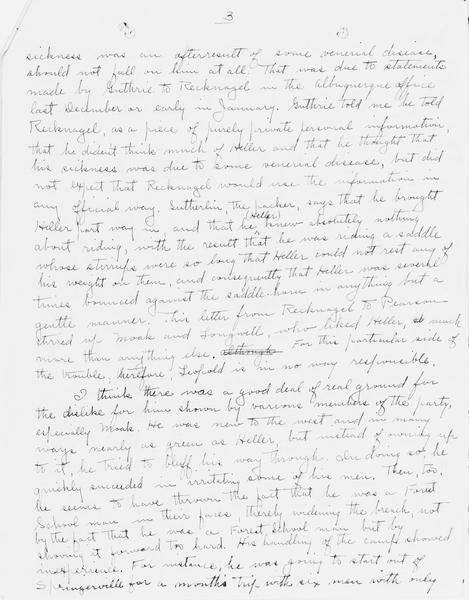 3
sickness was an afterresult of some venerial disease,
should not fall on him at all. That was due to statements
made by Guthrie to Recknagel in the Albuquerque office
last December or early in January. Guthrie told me he told
Recknagel, as a piece of purely private personal information,
that he didn't think much of Heller and that he thought that
his sickness was due to some venerial disease, but did
not expect that Recknagel would use the information in
any official way. Sutherlin, the packer, says that he brought
Heller part way in, and that he (Heller) knew absolutely nothing
about riding, with the result that he was riding a saddle
whose stirrups were so long that Heller could not rest any of
his weight on them, and consequently that Heller was several
times bounced against the saddle horn in anything but a
gentle manner. This letter from Recknagel to Pearson
stirred up Moak and Longwell, who liked Heller, much
more than anything else, although For this particular side of
the trouble, therefore, Leopold is in no way responsible.
I think there was a good deal of real ground for
the dislike for him shown by various members of the party,
especially Moak. He was new to the west and in many
ways nearly as green as Heller, but instead of owning up
to it, he tried to bluff his way through. In doing so he
quickly succeeded in irritating some of his men. Then, too,
he seems to have thrown the fact that he was a Forest
School man in their faces, thereby widening the breach, not
by the fact that he was a Forest School man but by
shoving it forward too hard. His handling of the camp showed
inexperience. For instance, he was going to start out of
Springerville for a month's trip with six men with only